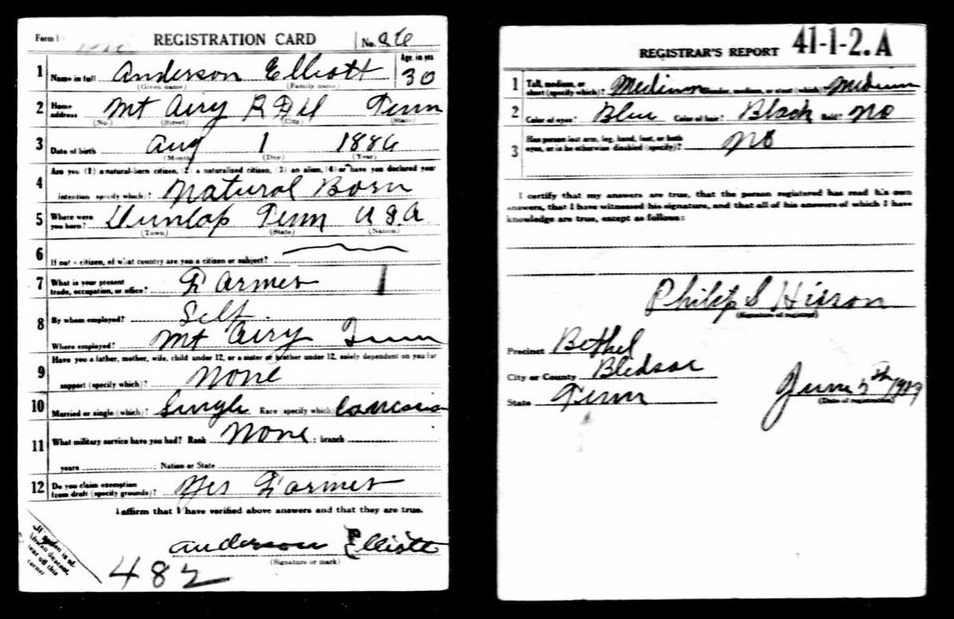 Form 1 REGISTRATION CARD No. 26
1 Name in full Anderson Elliott Age, in yrs 30
(Given name) (Family name)
2 Home address Mt Airy R Del Tenn
(No.) (Street) (City) (State)
3 Date of birth Aug 1 1886
(Month) (Day) (Year)
4 Are you (1) a natural-born citizen, (2) a naturalized citizen, (3) an alien, (4) or have you declared your
intention specify which)? Natural Born
5 Where were you born? Dunlap Tenn U S A
(Town) (State) (Nation)
6 If not a citizen, of what country are you a citizen or subject?
7 What is your present trade, occupation, or office? Farmer 1
8 By whom employed? Self
Where employed? Mt Airy Tenn
9 Have you a father, mother, wife, child under 12, or a sister or brother under 12, solely dependent on you for
support (specify which)? None
10 Married or single (which)? Single Race (specify which)? Caucasia
11 What military service have you had? Rank None ; branch
years ; Nation or State
12 Do you claim exemption from draft (specify grounds)? Yes Farmer
I affirm that I have verified above answers and that they are true.
Anderson Elliott
(Signature or mark)
482
REGISTRAR'S REPORT 41-1-2. A
1 Tall, medium, or short (specify which)? Medium Slender, medium, or stout (which)? Medium
2 Color of eyes? Blue Color of hair? Black Bald? No
3 Has person lost arm, leg, hand, foot, or both eyes, or is he otherwise disabled (specify)? No
I certify that my answers are true, that the person registered has read his own
answers, that I have witnessed his signature, and that all of his answers of which I have
knowledge are true, except as follows:
Philip S Hixson
(Signature of registrar)
Precinct Bethel
City or County Bledsoe
State Tenn
June 5th 1917
(Date of registration)